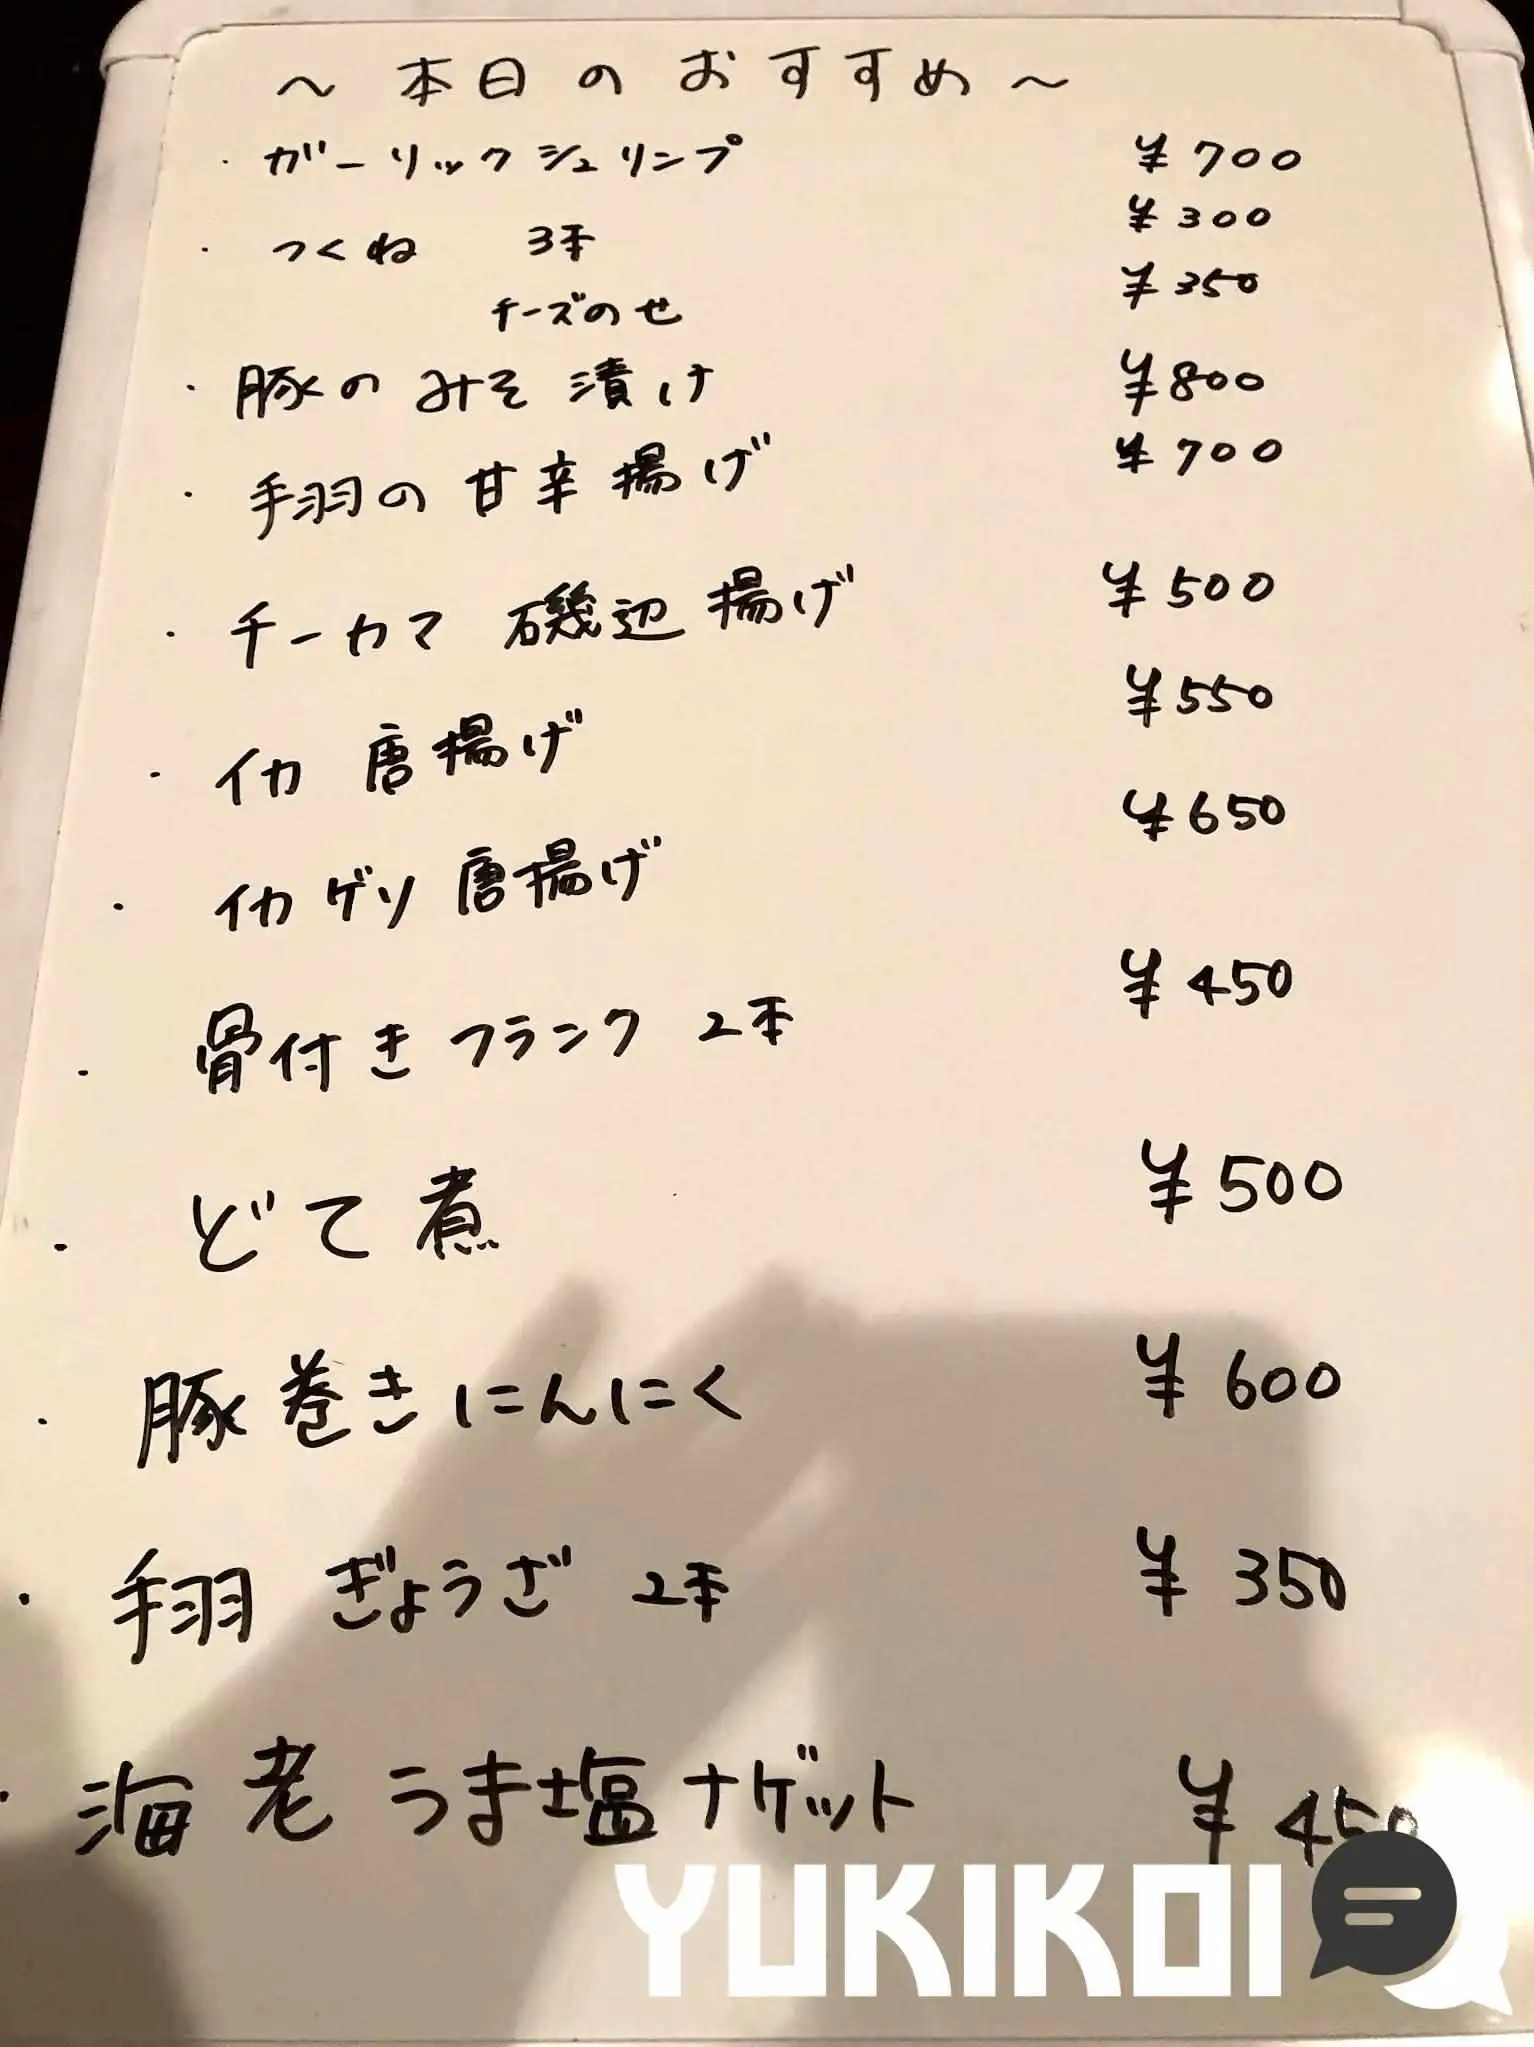 ～ 本日のおすすめ ～
・ ガーリックシュリンプ ¥700
・ つくね 3本 ¥300
チーズのせ ¥350
・ 豚のみそ漬け ¥800
・ 手羽の甘辛揚げ ¥700
・ チーカマ 磯辺揚げ ¥500
・ イカ 唐揚げ ¥550
・ イカゲソ唐揚げ ¥650
・ 骨付きフランク 2本 ¥450
・ どて煮 ¥500
・ 豚巻きにんにく ¥600
・ 手羽 ぎょうざ 2本 ¥350
・ 海老うま塩ナゲット ¥450
YUKIKOI